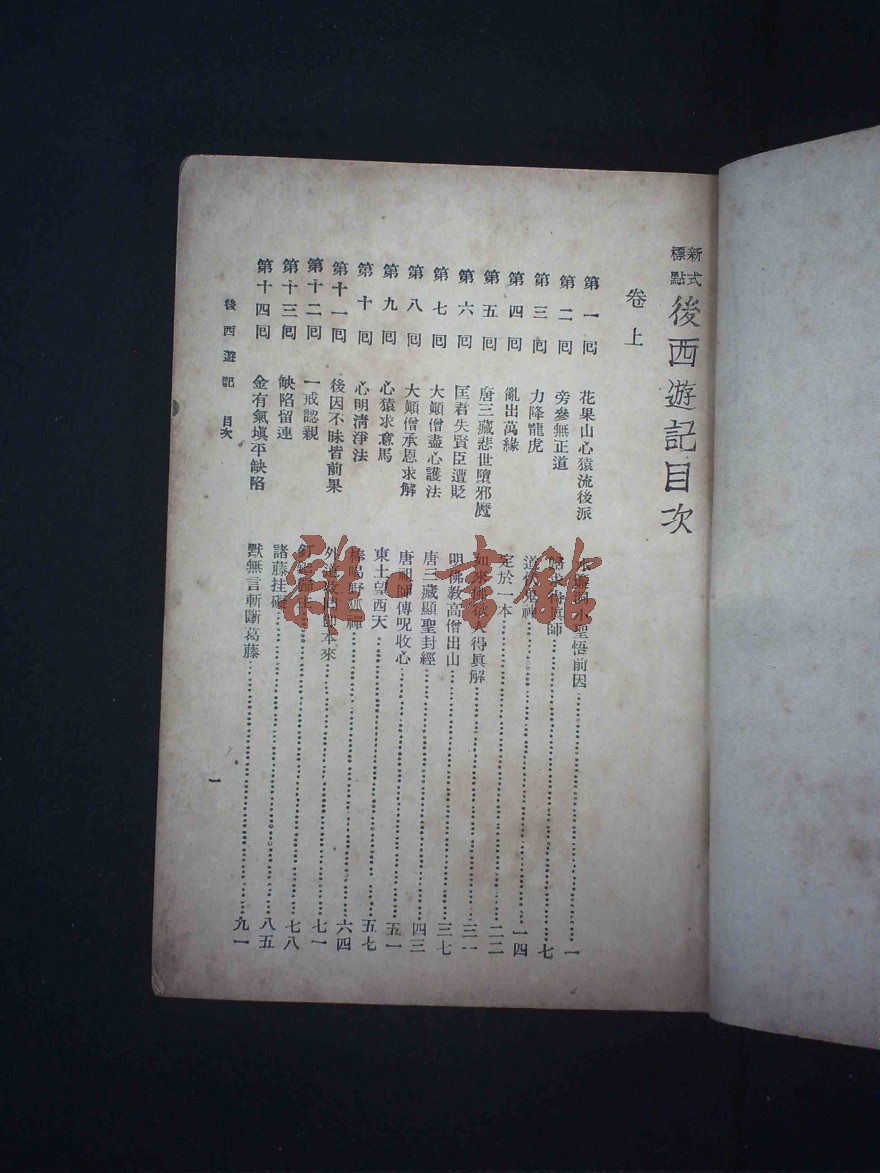 新式標點後西遊記目次
卷上
第一囘 花果山心猿流後派 小聖悟前因 一
第二囘 旁參無正道 得眞師 七
第三囘 力降龍虎 道 神 一四
第四囘 亂出萬緣 定於一本 二二
第五囘 唐三藏悲世墮邪魔 如來 人得眞解 三一
第六囘 匡君失賢臣遭貶 明佛教高僧出山 三七
第七囘 大顚僧盡心護法 唐三藏顯聖封經 四三
第八囘 大顚僧承恩求解 唐祖師傳呪收心 五一
第九囘 心猿求意馬 東土望西天 五七
第十囘 心明清淨法 棒喝野狐禪 六四
第十一囘 後因不昧皆前果 外 本來 七一
第十二囘 一戒認親 七八
第十三囘 缺陷留連 諸藤挂礙 八五
第十四囘 金有氣塡平缺陷 默無言斬斷葛藤 九一
後西遊記 目次
一
雜書館